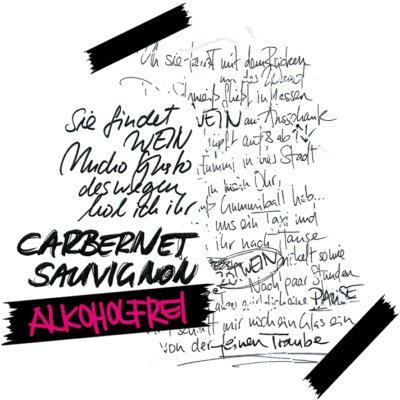 Sie findet
WEIN
Mucho Gusto
deswegen
hol ich ihr
CARBERNET
SAUVIGNON
ALKOHOLFREI
sie tanzt mit dem Rücken
an der Wand
Schweiß fließt in Massen
WEIN am Ausschank
hüpft auf & ab
Stadt
in mein Ohr,
Gummiball hab...
uns ein Taxi und
ihr nach Hause
WEIN
Nach paar Stunden
eine PAUSE
mir noch ein Glas ein
von der feinen Traube